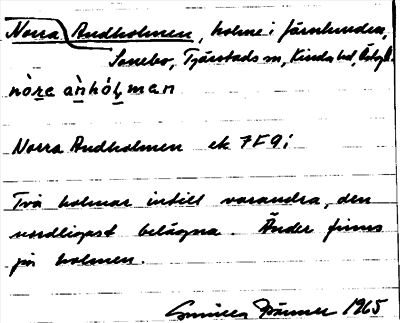 Norra Andholmen, holme i Järnlunden,
Sonebo, Tjärstads sn, Kinda hd, Östg. l.
nòra àǹhól̥man
Norra Andholmen ek 7F9i
Två holmar intill varandra, den
nordligast belägna. Änder finns
på holmen.
Gunilla 1965